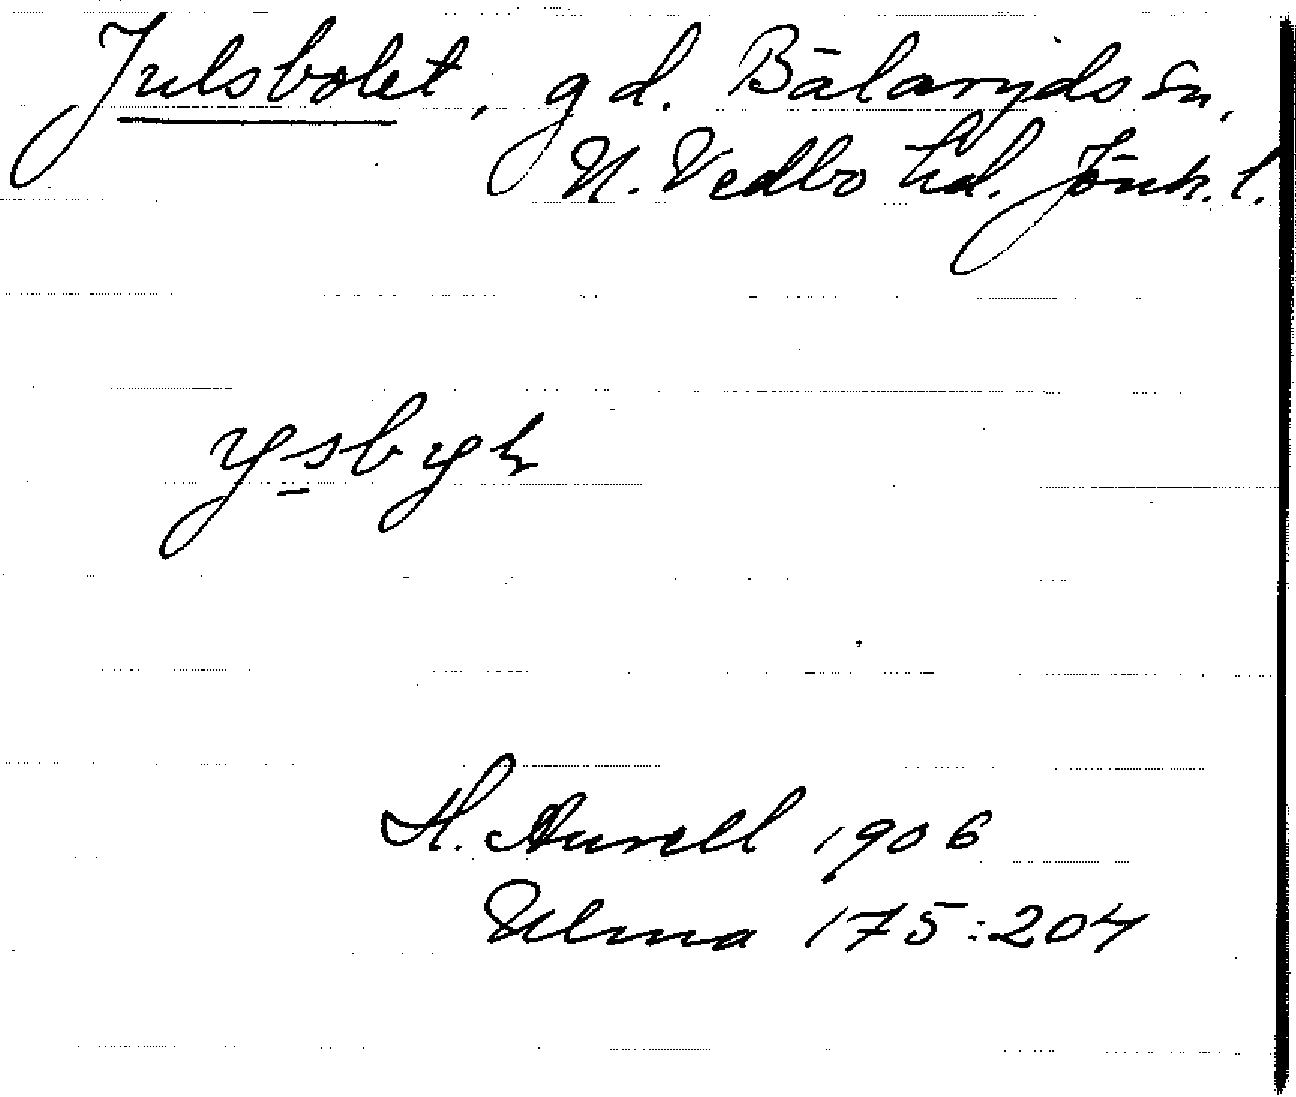 Julsbolet, gd. Bälaryds sn,
N. Vedbo hd. Jönk. l.
H. Aurell 1906
Ulma 175:204